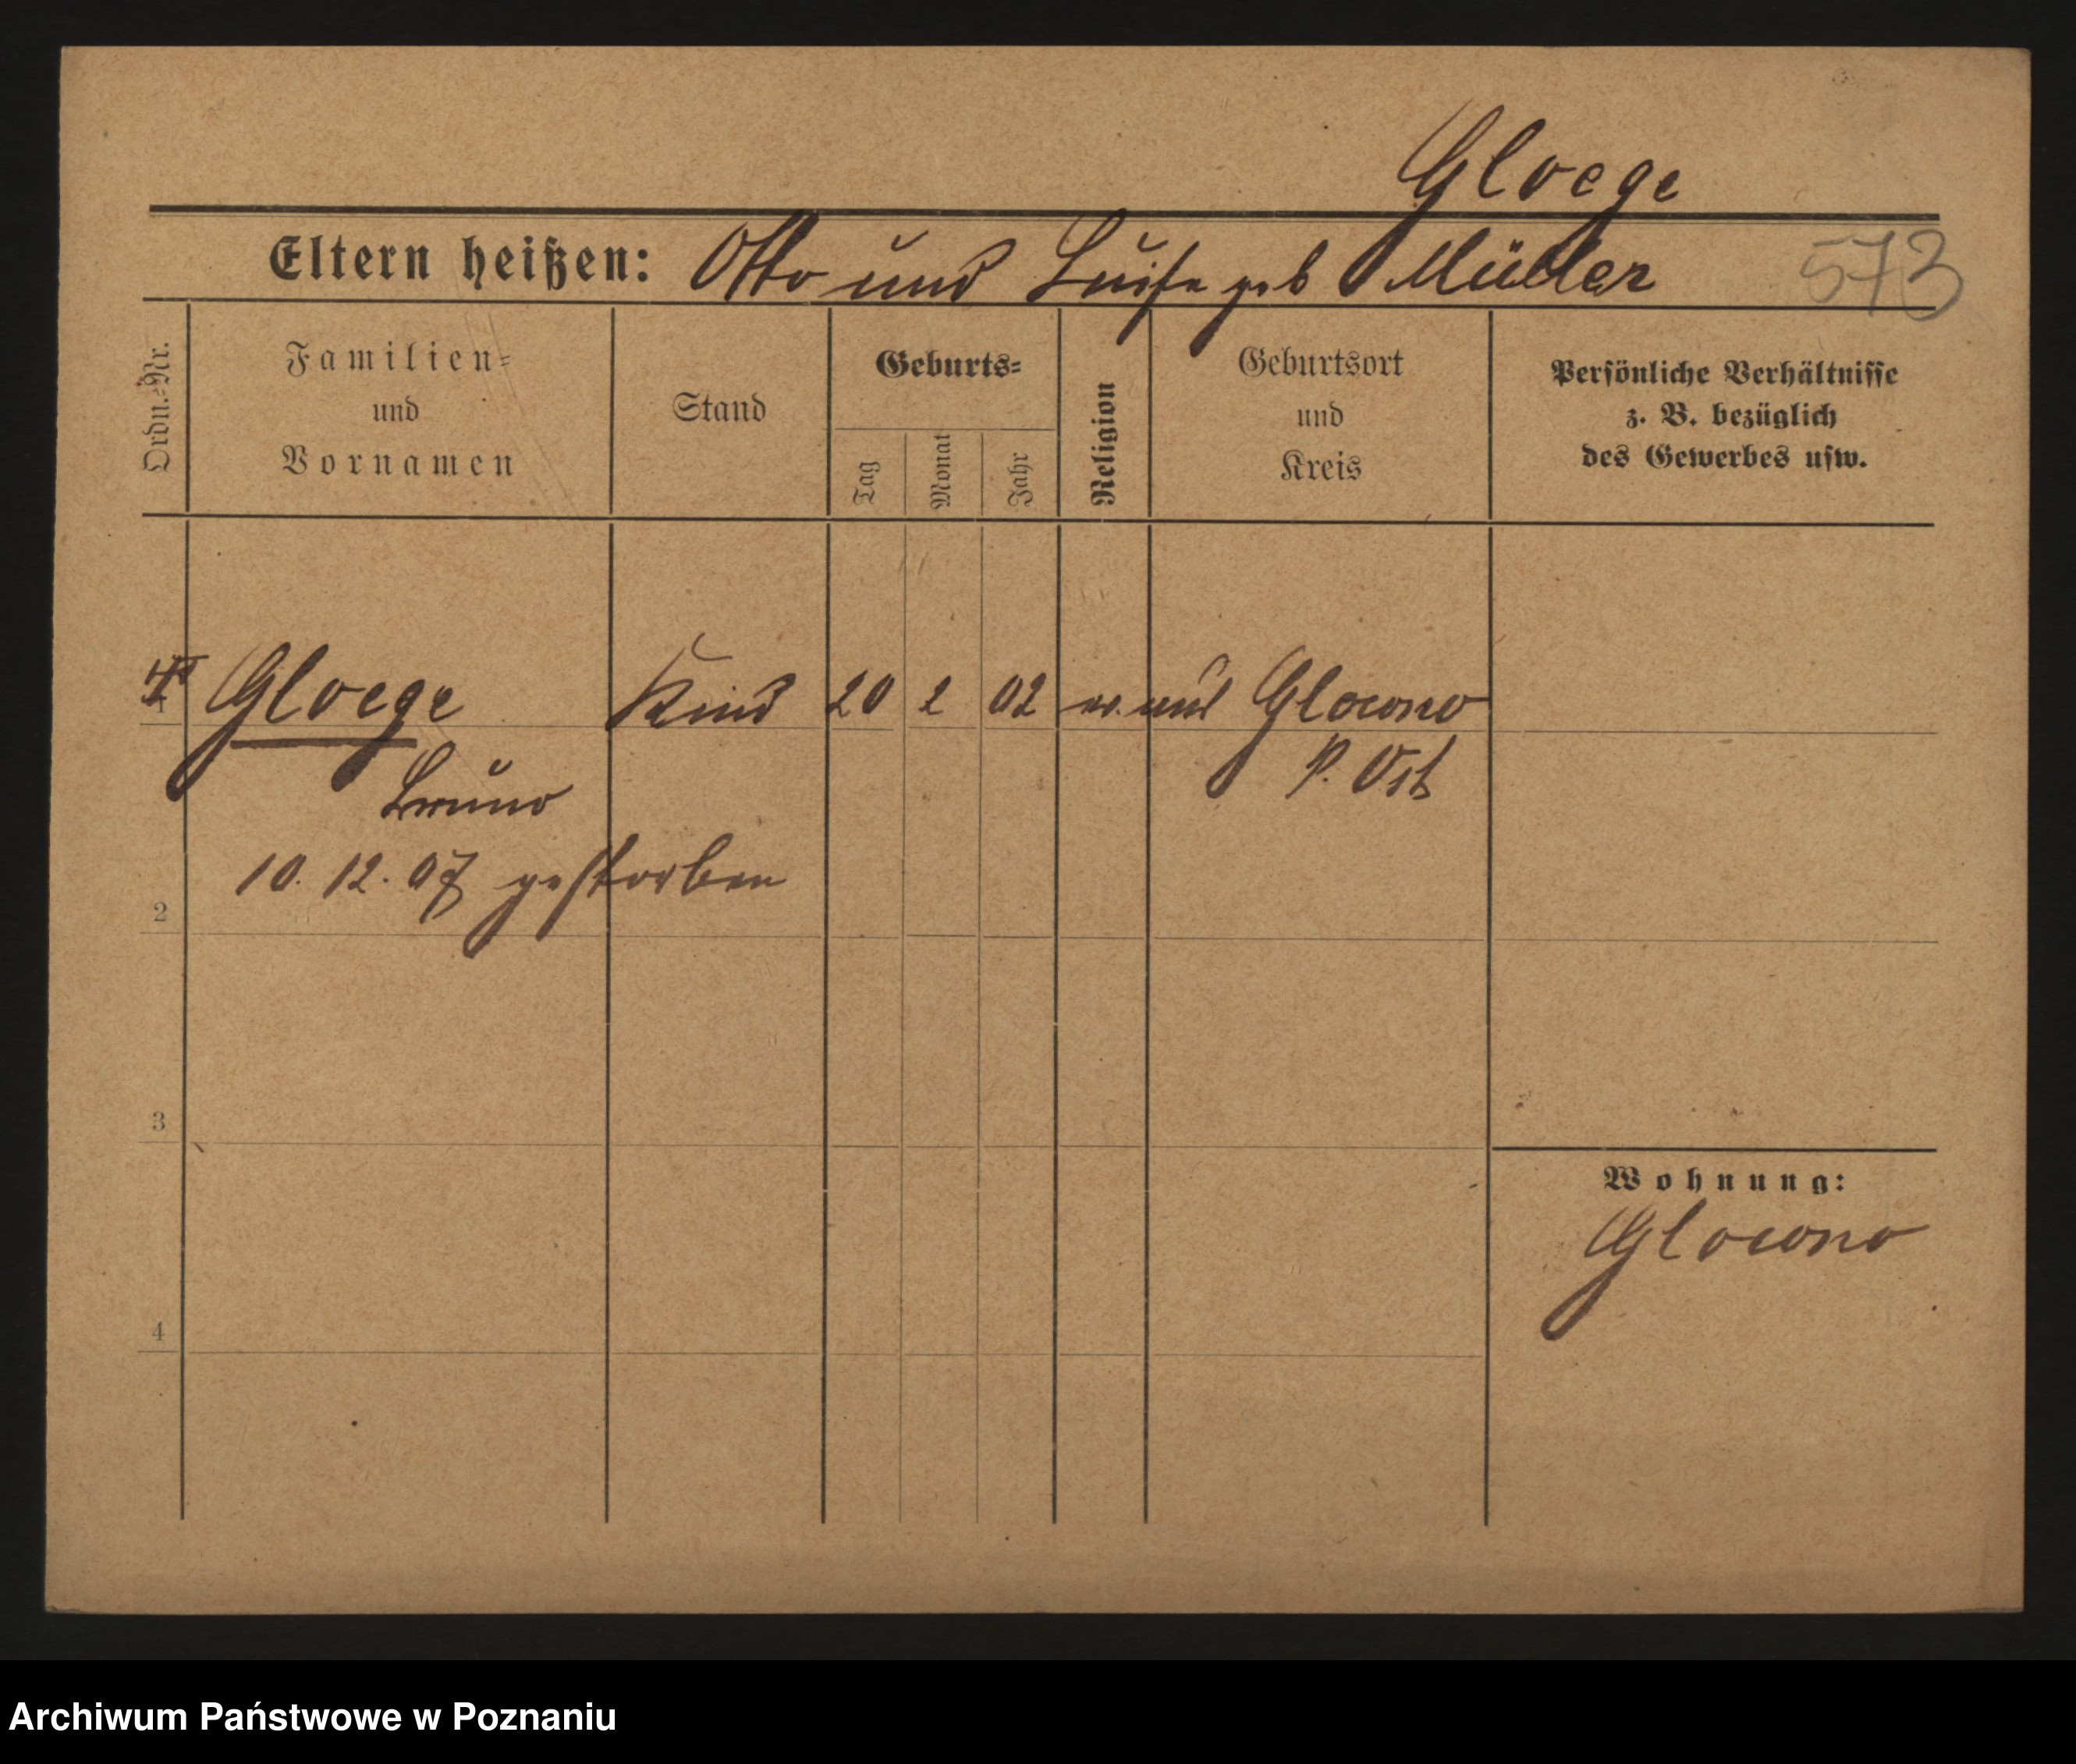 Gloege
Eltern heißen: Otto und Luise geb Müller 573
Ordn.-Nr.
Familien-
und
Vornamen
Stand
Geburts-
Tag
Monat
Jahr
Religion
Geburtsort
und
Kreis
Persönliche Verhältnisse
z. B. bezüglich
des Gewerbes usw.
1 Gloege Kind 20 2 02 Glowno
Bruno P. Ost
10. 12. 07 gestorben
2
3
Wohnung:
Glowno
4
Archiwum Państwowe w Poznaniu